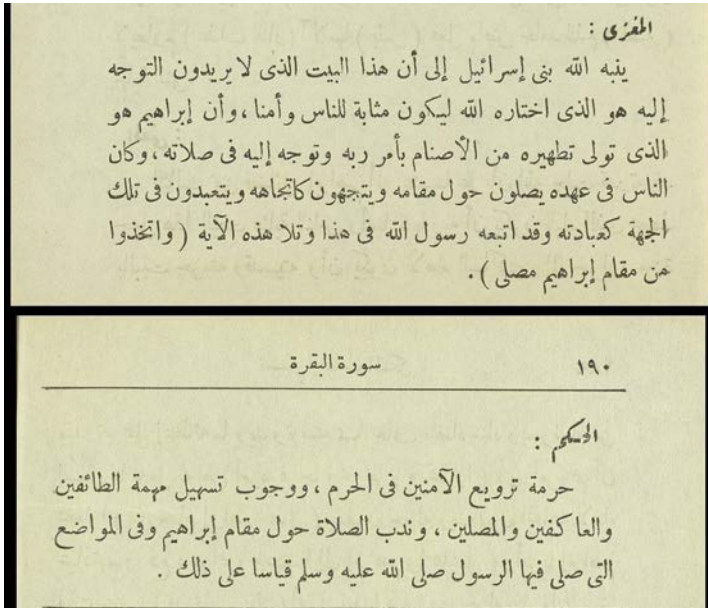 المغزى :
ينبه الله بنى إسرائيل إلى أن هذا البيت الذى لا يريدون التوجه
إليه هو الذى اختاره الله ليكون مثابة للناس وأمنا ، وأن إبراهيم هو
الذى تولى تطهيره من الأصنام بأمر ربه وتوجه إليه فى صلاته ، وكان
الناس فى عهده يصلون حول مقامه ويتجهون كاتجاهه ويتعبدون فى تلك
الجهة كعبادته وقد اتبعه رسول الله فى هذا وتلا هذه الآية ( واتخذوا
من مقام إبراهيم مصلى ) .
١٩٠ سورة البقرة
الحكم :
حرمة ترويع الآمنين فى الحرم ، ووجوب تسهيل مهمة الطائفين
والعاكفين والمصلين ، وندب الصلاة حول مقام إبراهيم وفى المواضع
التى صلى فيها الرسول صلى الله عليه وسلم قياسا على ذلك .